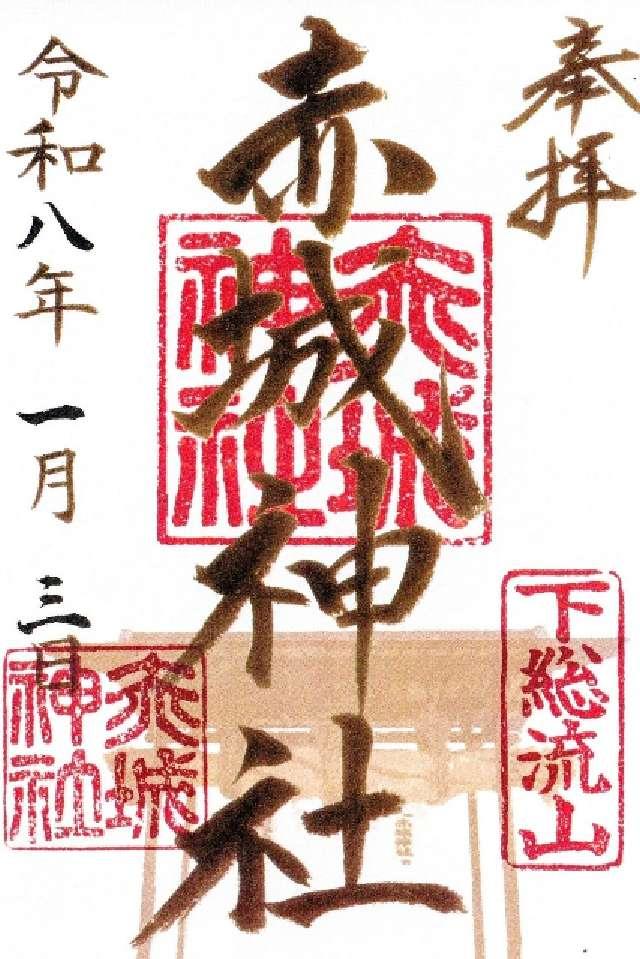 奉拝
下総流山
赤城神社
赤城神社
令和八年一月三日
赤城神社